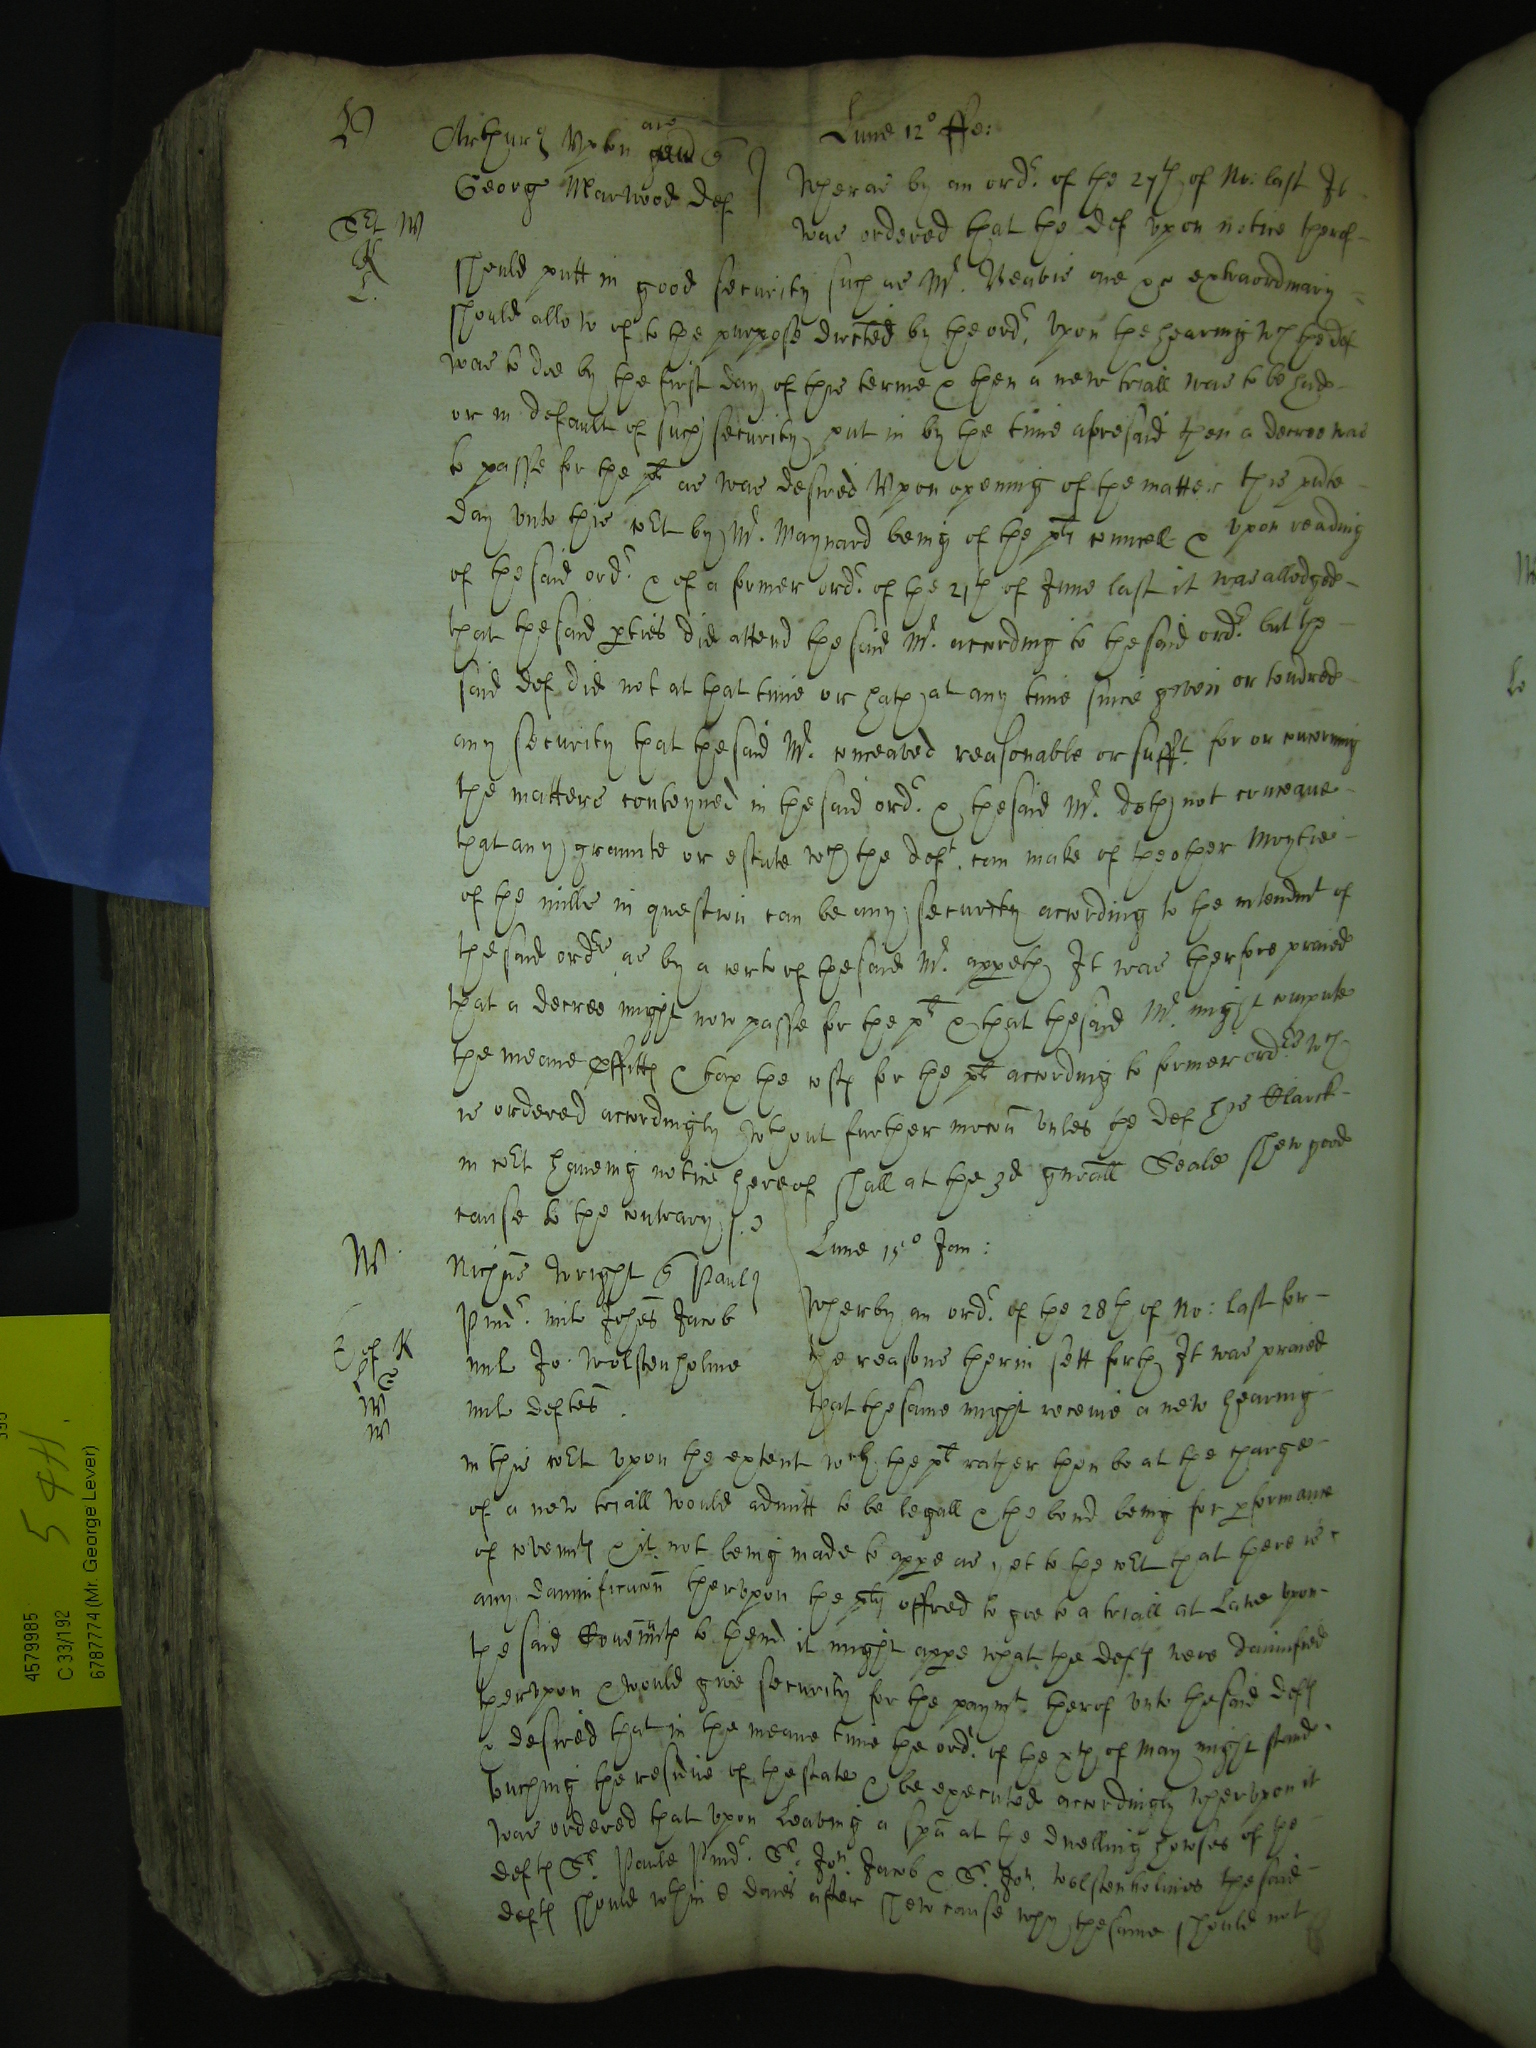 Lune 12° ffe:
Arthurus Vpton ar
George Marwood def
Wheras by an ordr. of the 27th of No: last It
was ordered that the def vpon notice therof
should putt in good security such as Mr. one extraordinary
should allow of to the purpose directed by the ordr. vpon the hearing wch the def
was to doe by the first day of this terme & then a new triall was to be had
or in default of such security put in by the time aforesaid then a decree was
to passe for the plt as was desired Vpon opening of the matter this pnte
day vnto this cort by Mr. Maynard being of the plts councell & vpon reading
of the said ordr. & of a former ordr. of the 21th of June last it was alledged
that the said pties did attend the said Mr. according to the said ordr. but the
said def did not at that time or hath at any time since given or tendred
any security that the said Mr. conceaved reasonable or sufft. for or concerning
the matters conteyned in the said ordr. & the said Mr. doth not conceave
that any graunte or estate wch the deft. can make of the other Moytie
of the mills in question can be any security according to the intendmt of
the said ordrs as by a certe of the said Mr. appeth It was therfore praied
that a decree might now passe for the plt & that the said Mr. might compute
the meane pffitts & tax the costs for the plt according to former ordrs wch
is ordered accordingly wthout further mocon vnles the def his Clarck
in cort haveing notice hereof shall at the 3d gnall Seale shew good
cause to the contrary
Lune 15° Jan:
Nichus Wright Pauls
Pindr. mil Johes Jacob
mil Jo. Wolstenholme
mil deftes.
Wherby an ordr. of the 28th of No: last for
the reasons therin sett forth It was praied
that the same might receive a new hearing
in this cort vpon the extent wch the plt rather then be at the charge
of a new triall would admitt to be legall & the bond being for pformance
of covents & it not being made to appe as yet to the cort that there is
any damnificacon thervpon the plts offred to goe to a triall at Lawe vpon
the said Covennts to thend it might appe what the defts were damnified
thervpon & would give security for the paymt. therof vnto the said defts
& desired that in the meane time the ordr. of the xth of May might stand
touching the residue of the state & be executed accordingly Whervpon it
was ordered that vpon Leaving a spa at the dwelling howses of the
defts Sr. Paule Pindr. Sr. Jon. Jacob & Sr. Jon. Wolstenholmes the said
defts should wthin 8 daies after shew cause why the same should not
4579985
C 33/192
6787774 (Mr. George Lever)